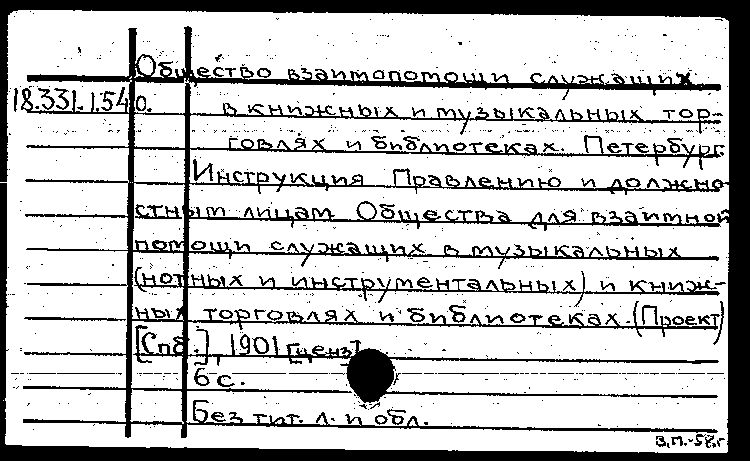 Общество взаимопомощи служащих
18.331.1.540. в книжных и музыкальных тор-
говлях и библиотеках. Петербург.
Инструкция Правлению и должно-
стным лицам Общества для взаимной
помощи служащих в музыкальных
(нотных и инструментальных) и книж-
ных торговлях и библиотеках. (Проект)
[Спб.], 1901 [ценз].
6 с.
Без тит. л. и обл.
В.П.-58г